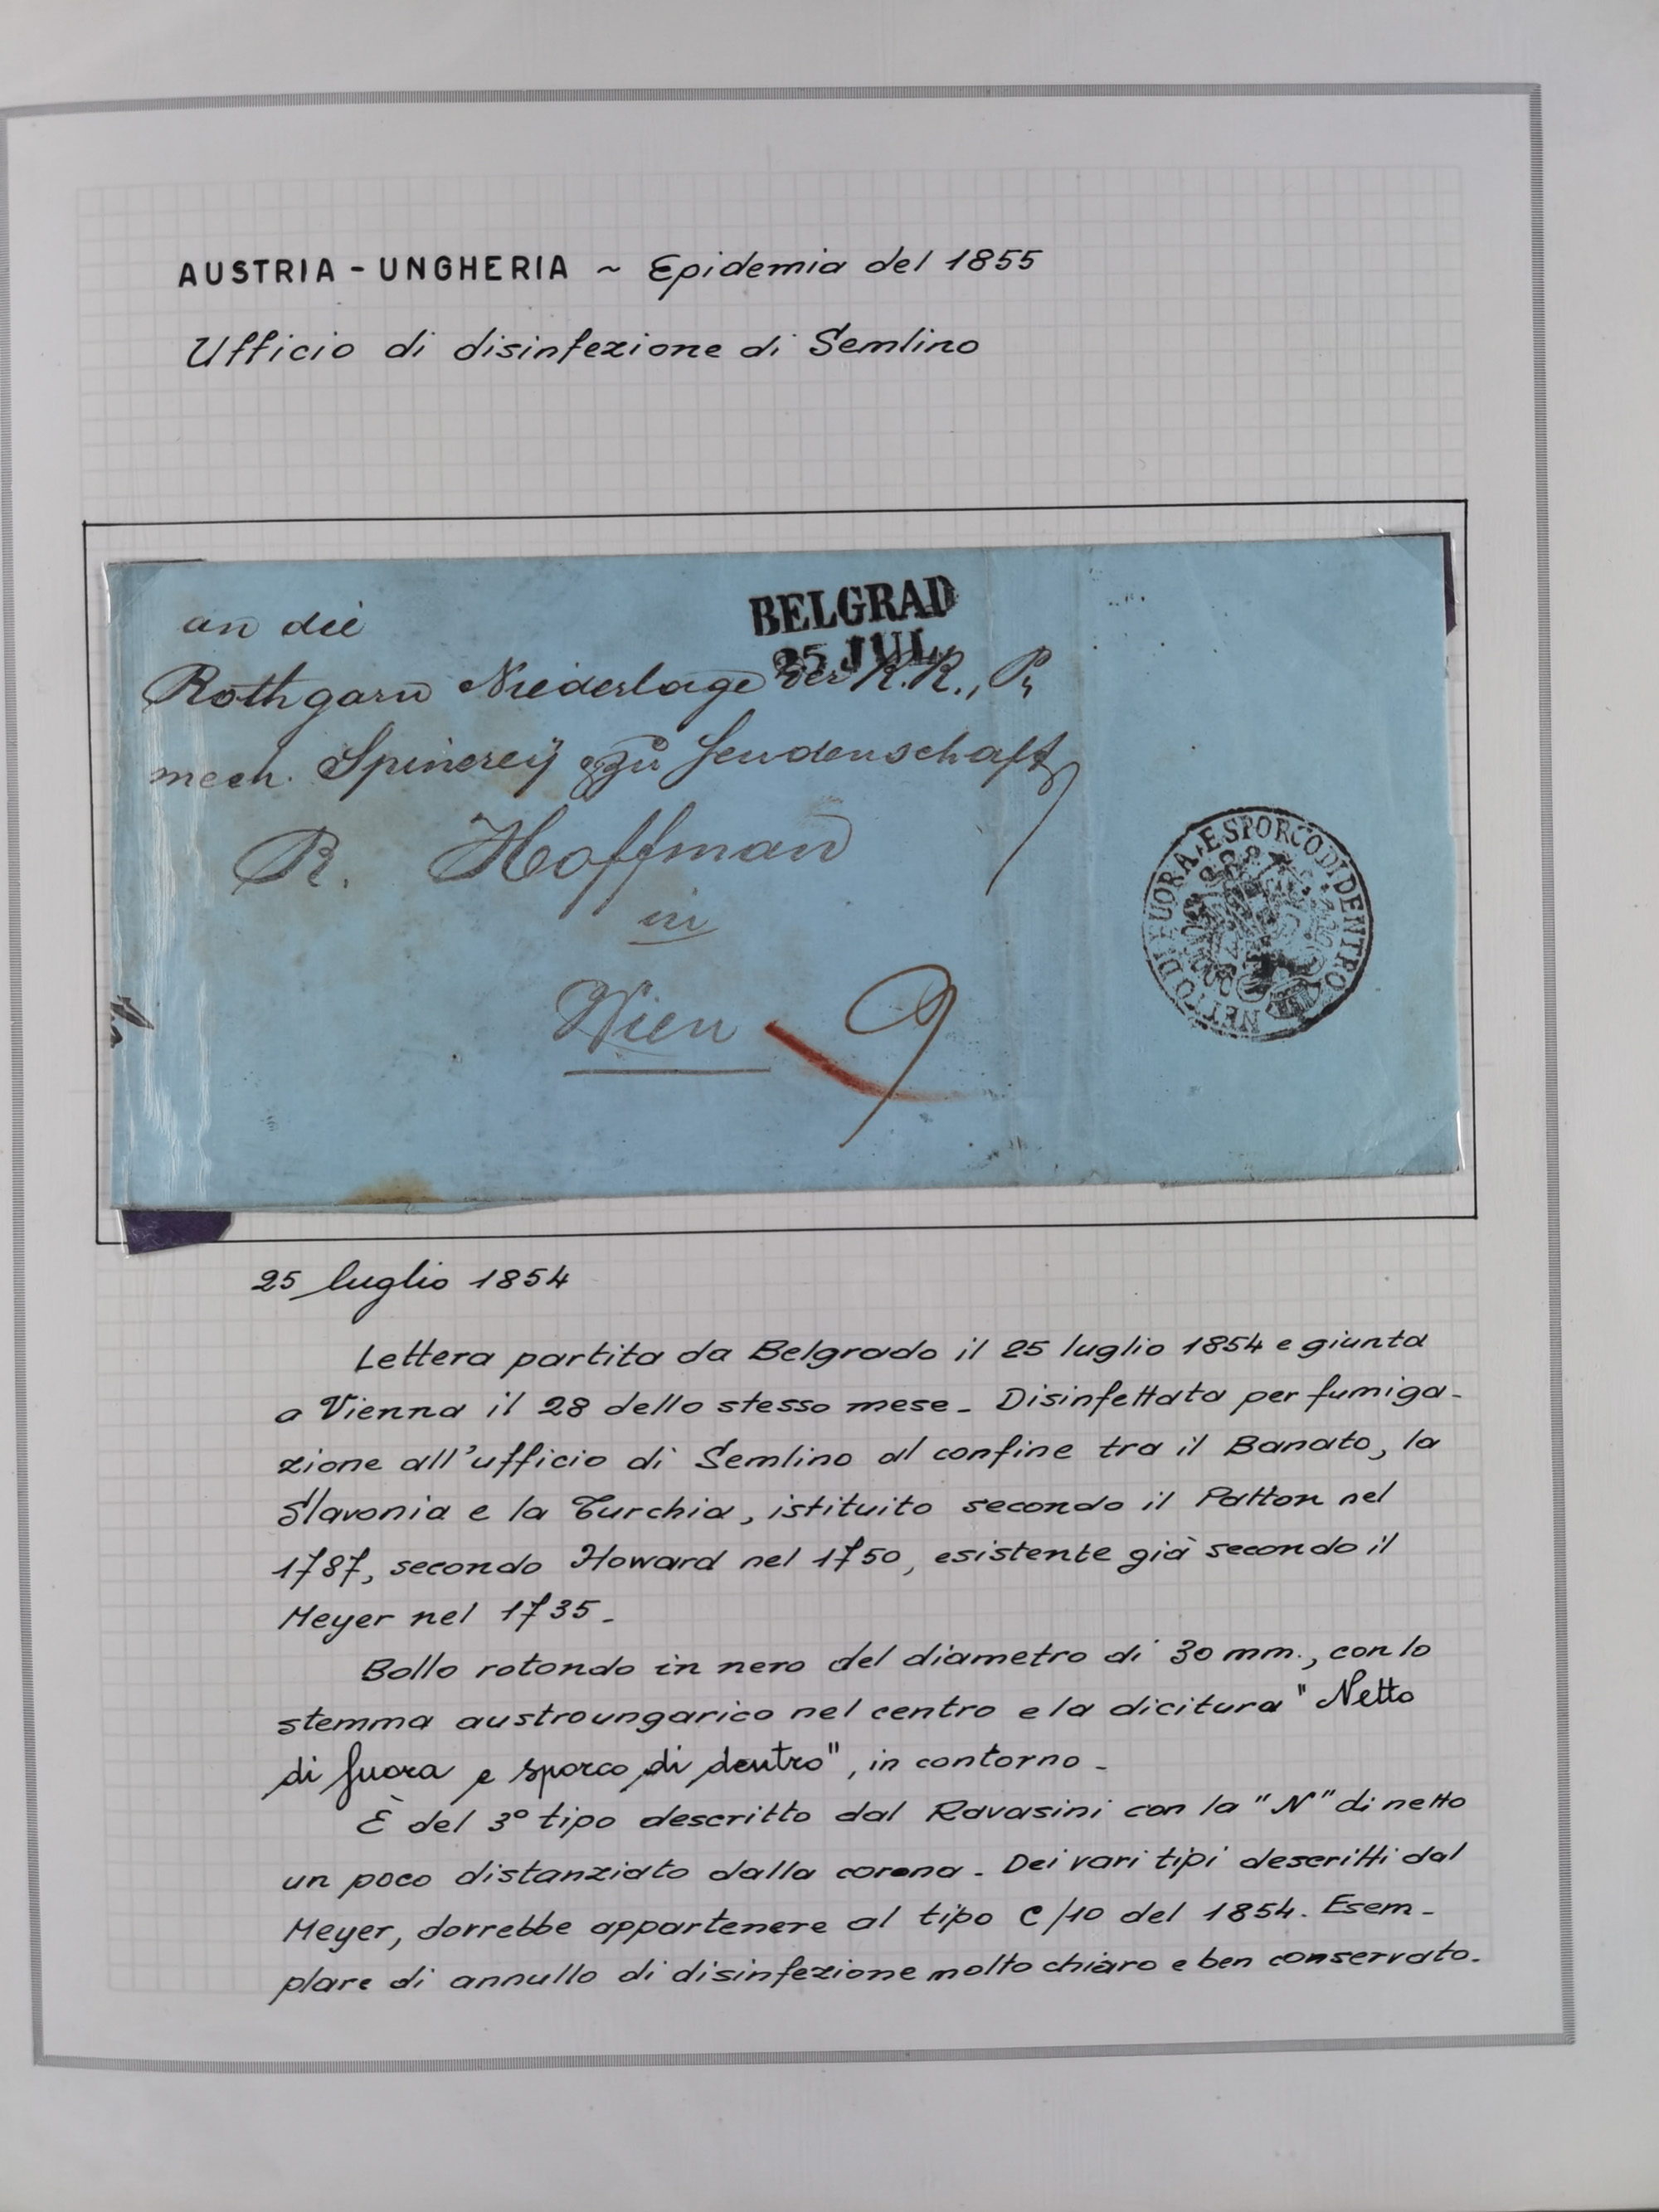 AUSTRIA - UNGHERIA ~ Epidemia del 1855
Ufficio di disinfezione di Semlino
BELGRAD
25 JUL
an die
Rothgarn Niederlage der K.K., P.
mech. Spinerey zu
R. Hoffman
in
Wien 9
NETTO DI FUORA E SPORCO DI DENTRO
25 luglio 1854
Lettera partita da Belgrado il 25 luglio 1854 e giunta
a Vienna il 28 dello stesso mese - Disinfettata per fumiga-
zione all'ufficio di Semlino al confine tra il Banato, la
Slavonia e la Turchia, istituito secondo il Patton nel
1787, secondo Howard nel 1750, esistente già secondo il
Meyer nel 1735 -
Bollo rotondo in nero del diametro di 30 mm., con lo
stemma austroungarico nel centro e la dicitura "Netto
di fuora e sporco di dentro", in contorno -
È del 3° tipo descritto dal Ravasini con la "N" di netto
un poco distanziato dalla corona - Dei vari tipi descritti dal
Meyer, dorrebbe appartenere al tipo C/10 del 1854. Esem-
plare di annullo di disinfezione molto chiaro e ben conservato.